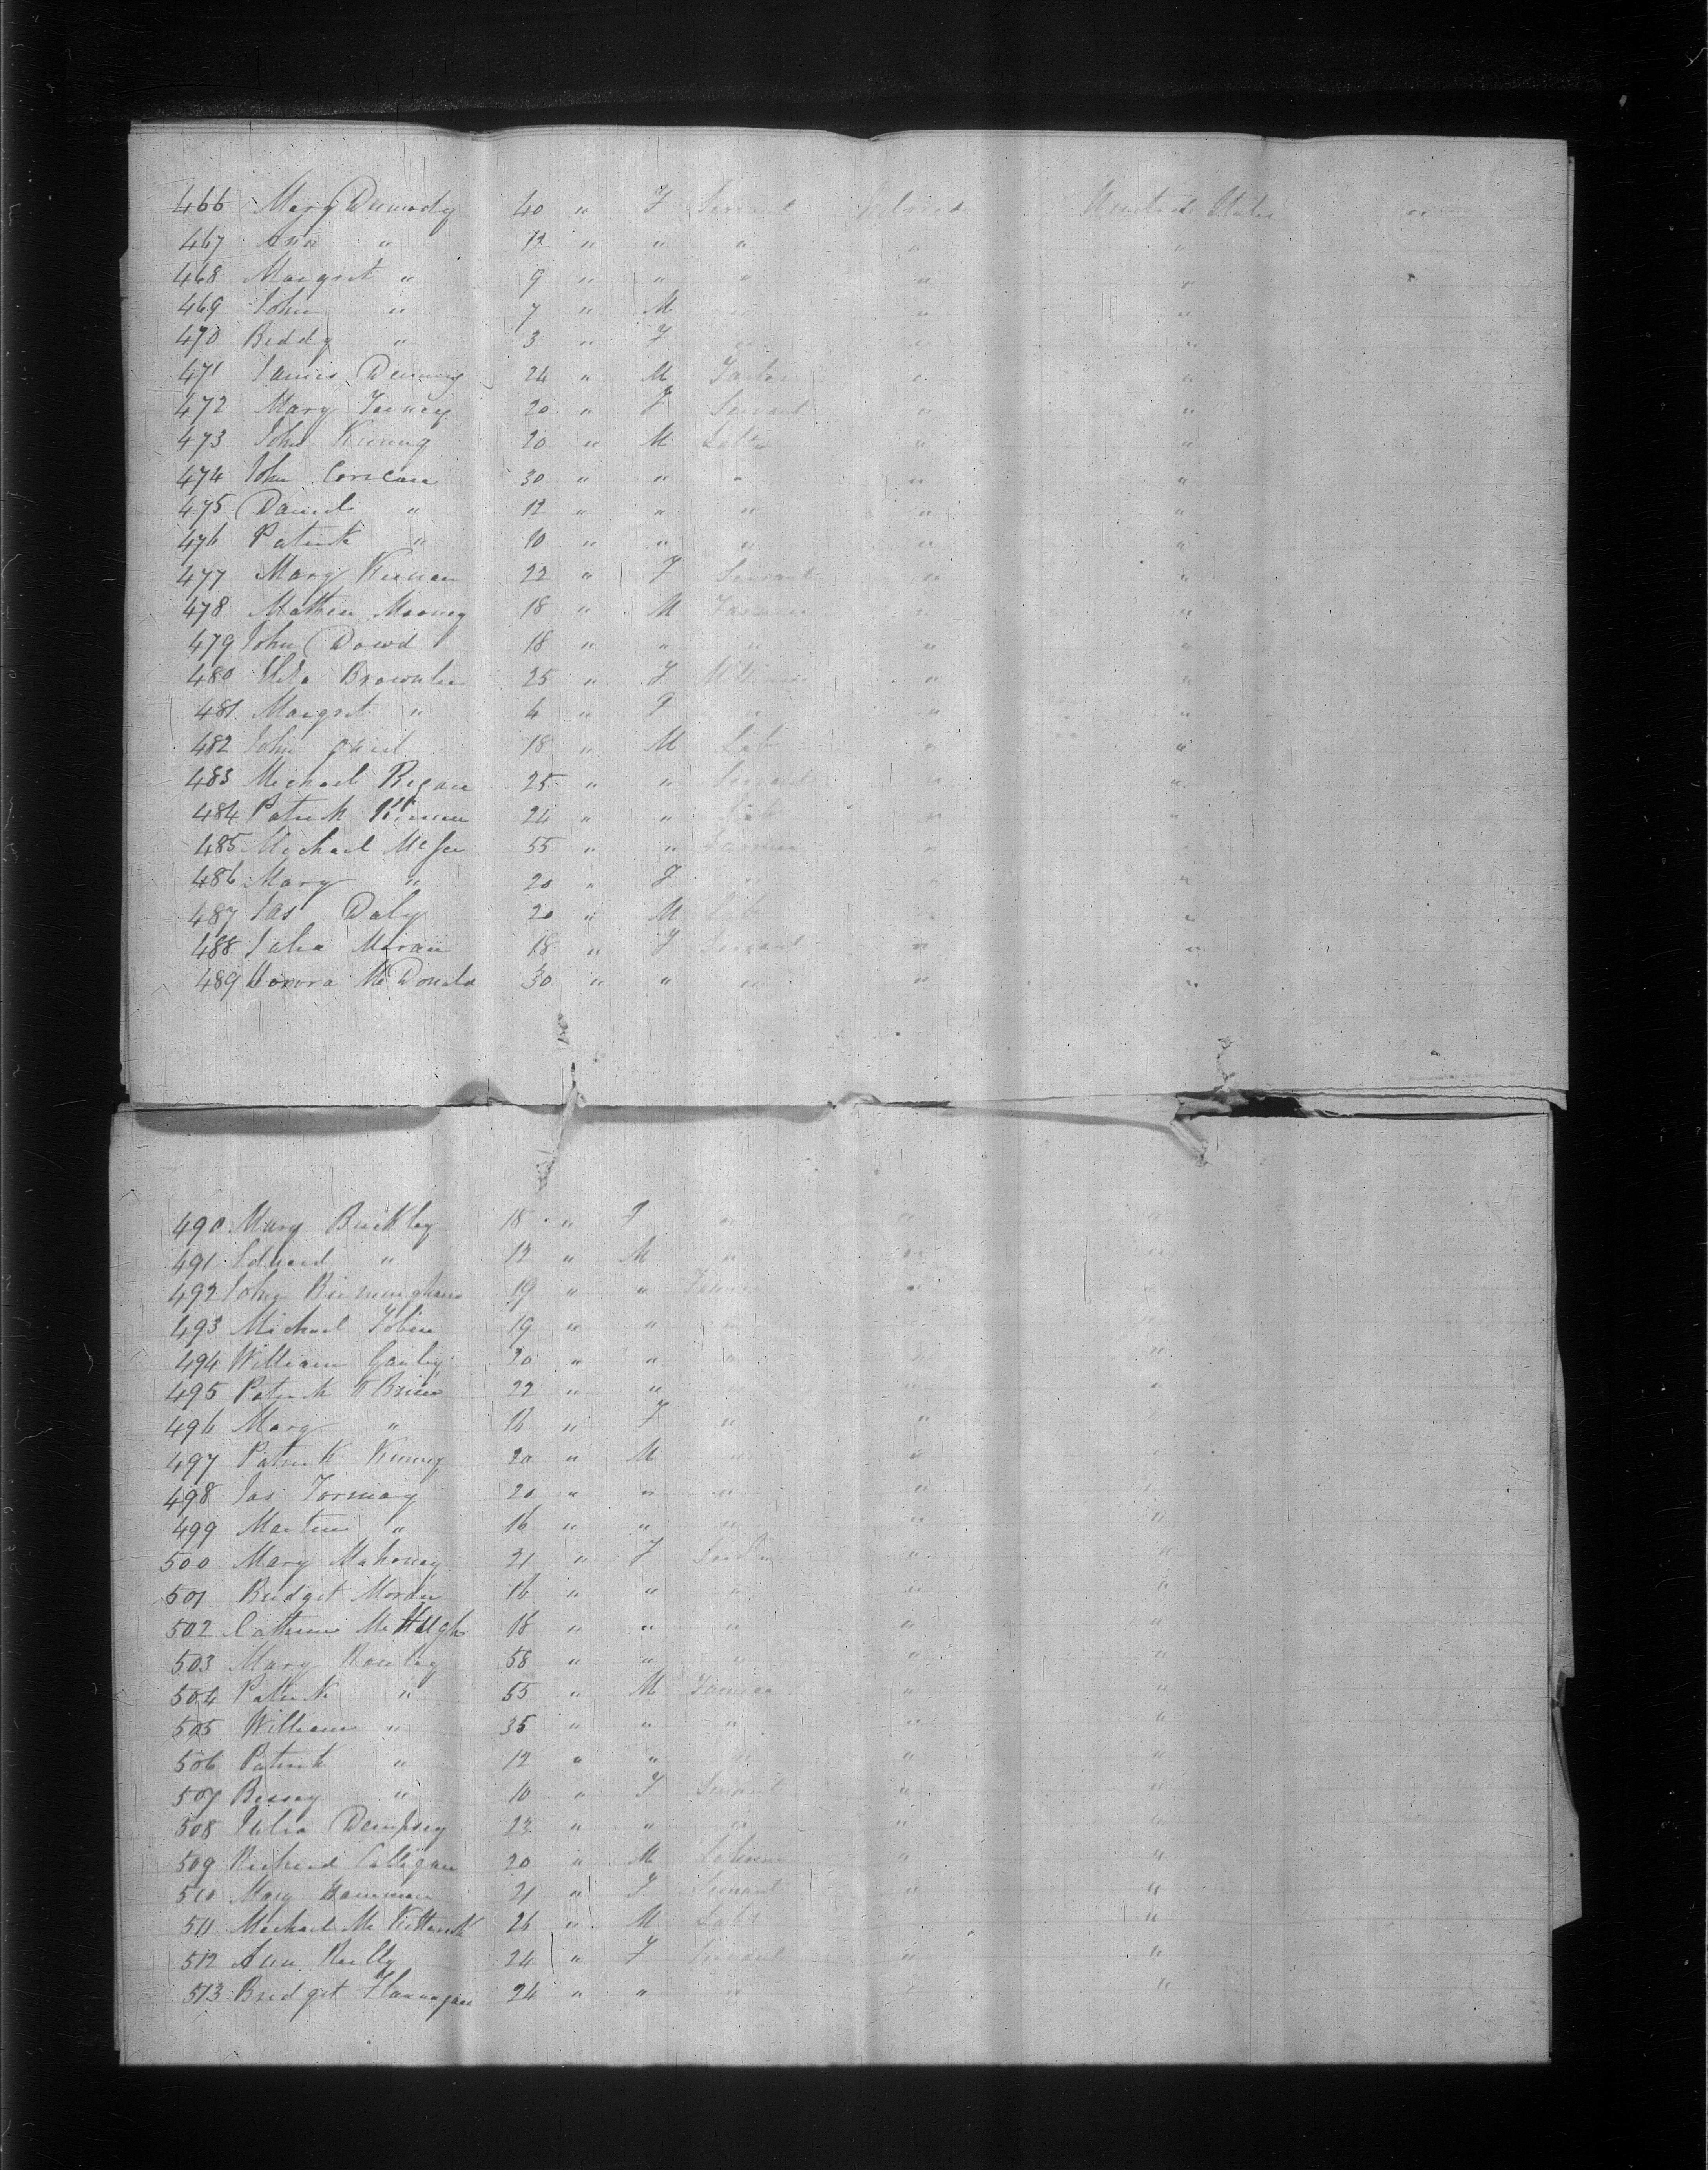 466 Mary Dumody 40 " F Servant Ireland United States "
467 Ann " 12 " " " " "
468 Margret " 9 " " " " "
469 John " 7 " M " " "
470 Biddy " 3 " F " " "
471 James Denning 24 " M Tailor " "
472 Mary 20 " F Servant " "
473 John Kenny 20 " M Labr " "
474 John Corcoran 30 " " " " "
475 Daniel " 12 " " " " "
476 Patrick " 10 " " " " "
477 Mary Kernan 22 " F Servant " "
478 Mathew Mooney 18 " M Farmer " "
479 John Dowd 18 " " " " "
480 Eliza Brownlee 25 " F Milliner " "
481 Margret " 4 " F " " "
482 John 18 " M Lab " "
483 Michael Regan 25 " " Servant " "
484 Patrick 24 " " Lab " "
485 Michael McGee 55 " " Farmer " "
486 Mary " 20 " F " " "
487 Jas Daly 20 " M Lab " "
488 Julia Moran 18 " F Servant " "
489 Honora McDonald 30 " " " " "
490 Mary Buckley 18 " F " " "
491 Edward " 12 " M " " "
492 John Birmingham 19 " " Farmer " "
493 Michael Tobin 19 " " " "
494 William Ganley 20 " " " "
495 Patrick O Brien 22 " " "
496 Mary " 16 " F " "
497 Patrick Kenny 20 " M " " "
498 Jas Tormay 20 " " " " "
499 Martin " 16 " " " " "
500 Mary Mahoney 21 " F " "
501 Bridget 16 " " " " "
502 Catherine McHugh 18 " " " " "
503 Mary Rowley 58 " " " " "
504 Patrick " 55 " M Farmer " "
505 William " 35 " " " " "
506 Patrick " 12 " " " " "
507 Bessey " 10 " F Servant " "
508 Julia Dempsey 23 " " " " "
509 Richard Colligan 20 " M Laborer " "
510 Mary 21 " F Servant " "
511 Michael Mc 26 " M Labr "
512 Ann Reilly 24 " F Servant " "
513 Bridget Flannagan 24 " " " " "